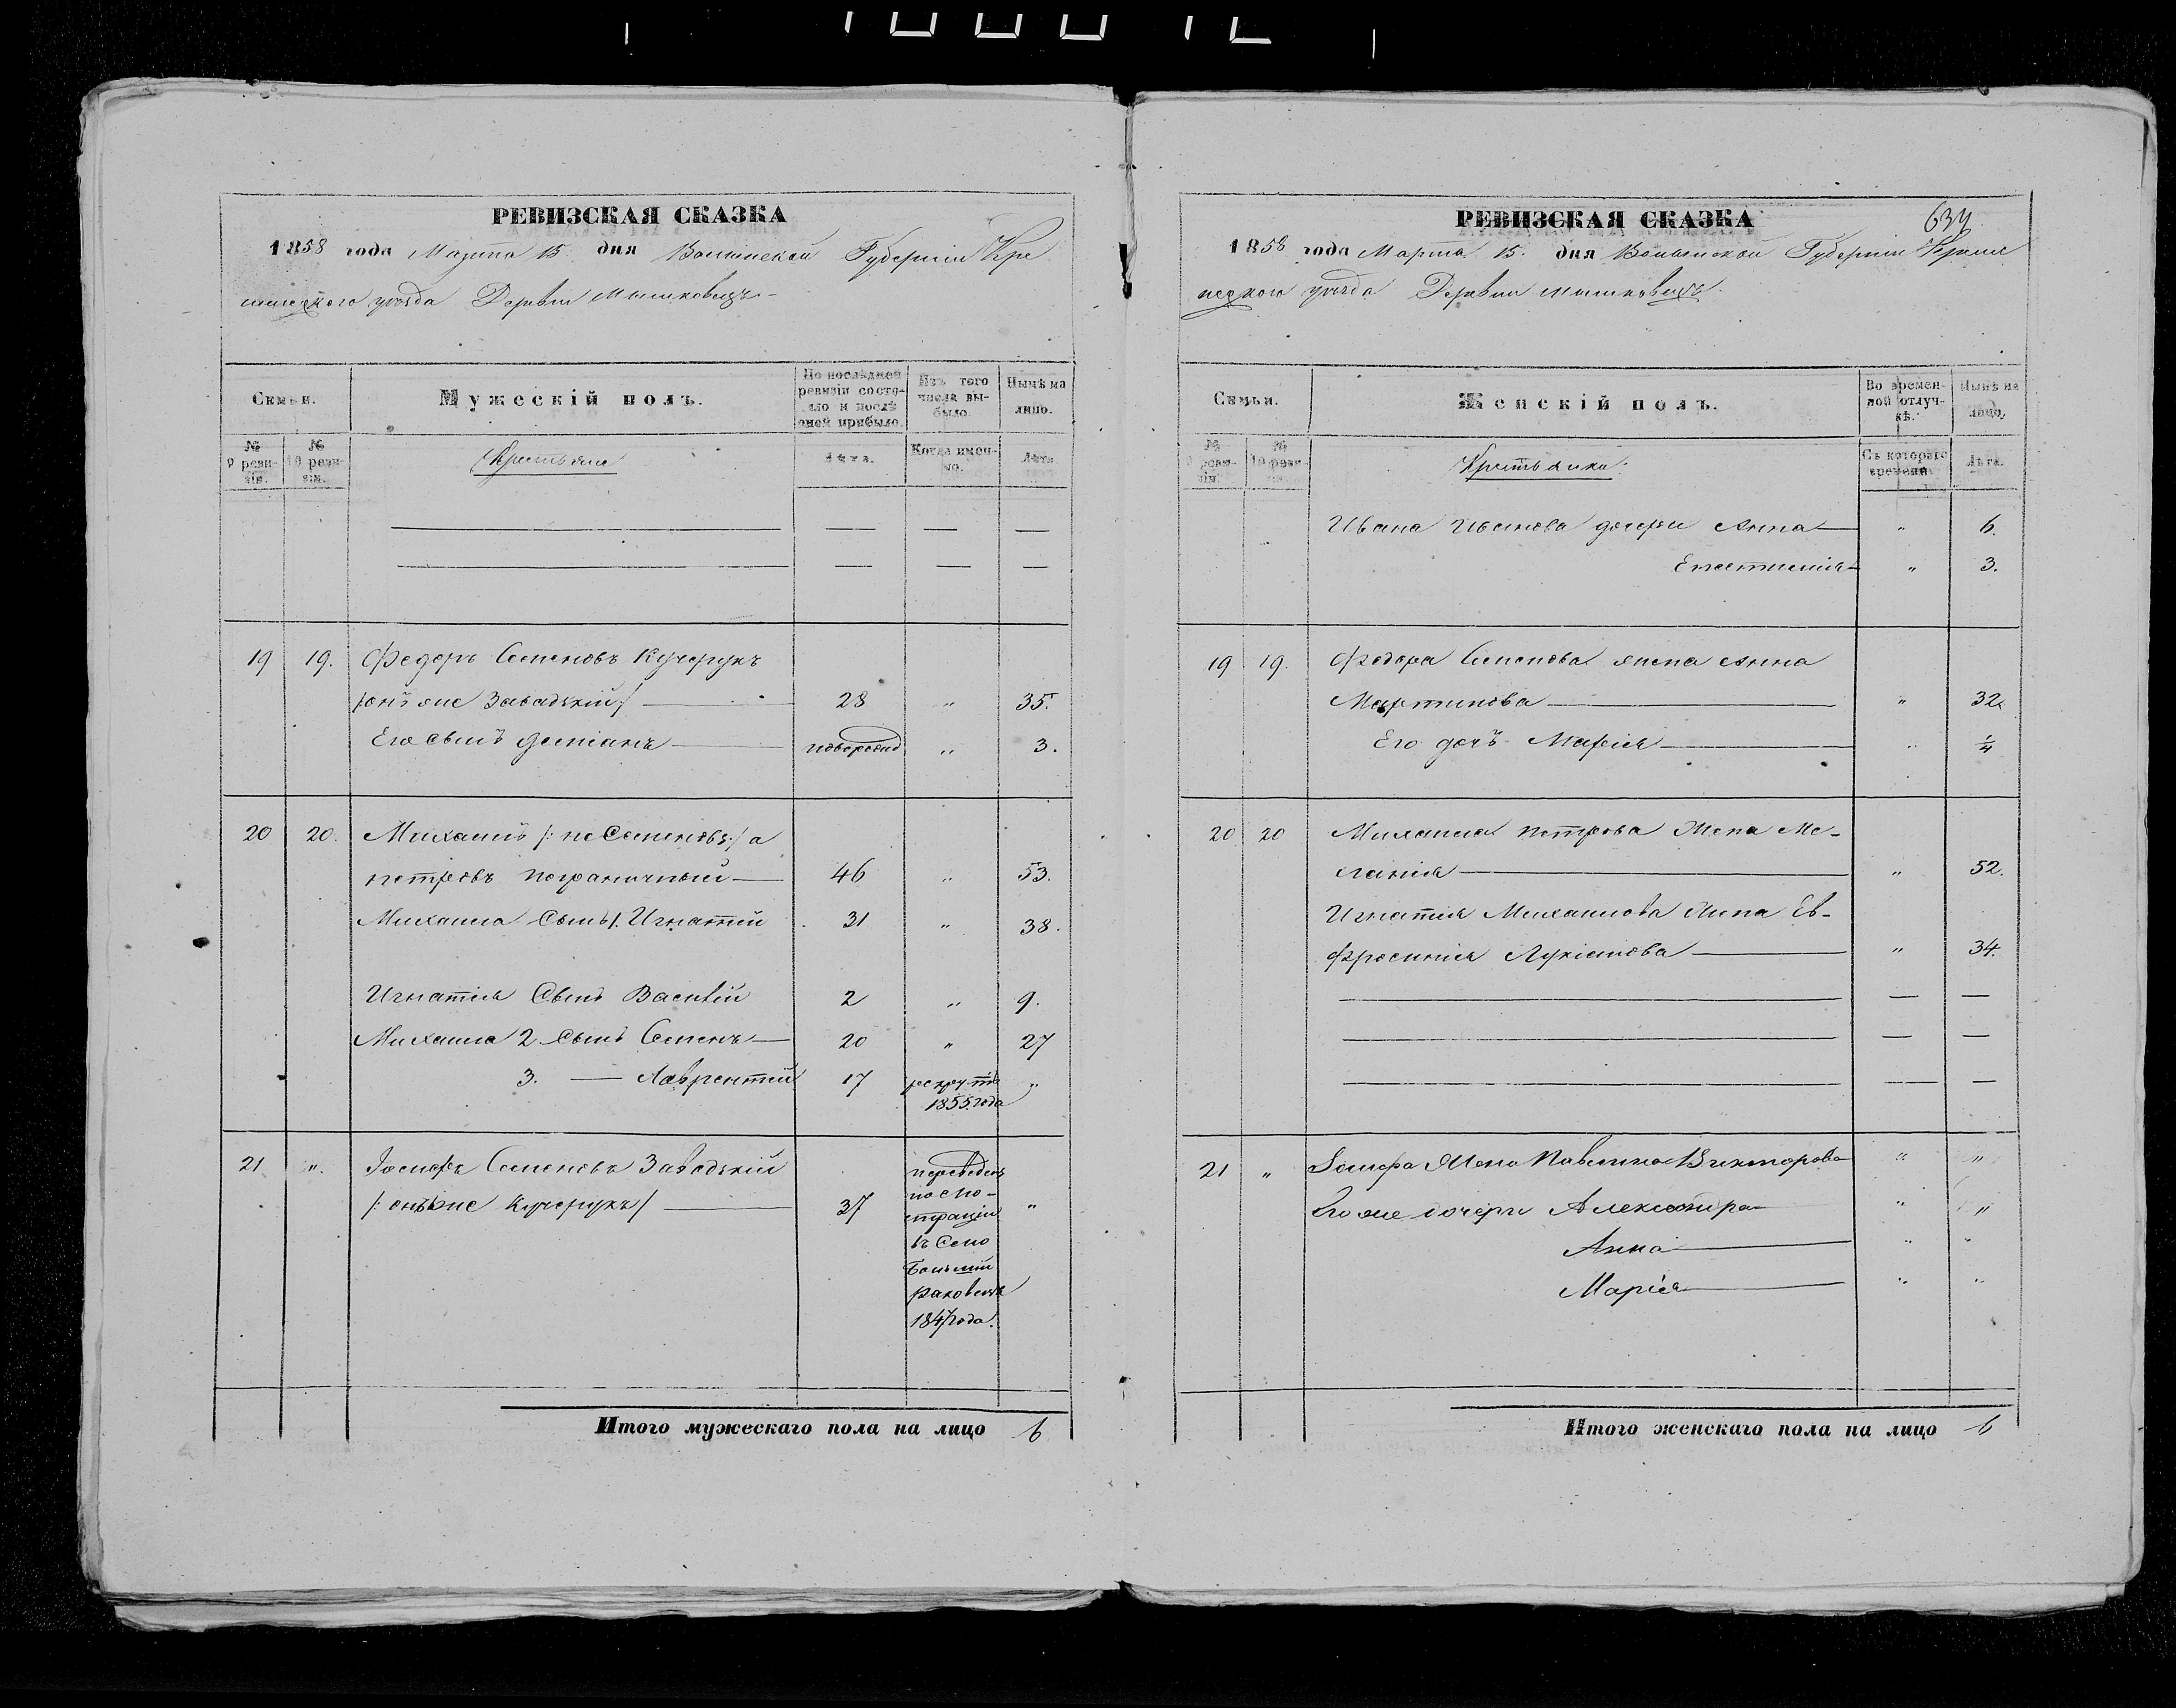 РЕВИЗСКАЯ СКАЗКА
1858 года Марта 15 дня Волынской Губерніи Кре
менецкого уѣзда Деревни Мышковецъ
Семьи.
Мужескій полъ.
По послѣдней ревизіи состояло и послѣ оной прибыло.
Изъ того числа выбыло.
Нынѣ на лицо.
№ 9 ревизіи.
№ 10 ревизіи.
Крестьяне
Лѣта.
Когда именно.
Лѣта
19 19. Федоръ Семеновъ Кучерукъ
/онъ же Завадзкій/ 28 " 35.
Его сынъ Деміанъ новорожд " 3.
20 20. Михаилъ /: не Семеновъ:/ а
петровъ пограничный 46 " 53.
Михаила Сынъ 1. Игнатій 31 " 38.
Игнатія Сынъ Василій 2 " 9.
Михаила 2 Сынъ Семенъ 20 " 27
3. — Лаврентій 17 рекрутъ 1855 года "
21 " Іосифъ Семеновъ Завадзкій
/: онъ же Кучерукъ/ 37 "
переведенъ
въ Село
1847 года.
Итого мужескаго пола на лицо 6
РЕВИЗСКАЯ СКАЗКА
634
1858 года Марта 15. дня Волынской Губерніи Креме
нецкого уѣзда Деревни мышковецъ
Семьи.
Женскій полъ.
Во временной отлучкѣ.
Нынѣ на лицо.
№ 9 ревизіи.
№ 10 ревизіи.
Крестьянки.
Съ котораго времени
Лѣта.
Ивана Иванова дочери Анна " 6.
" 3.
19 19. Федора Семенова жена Анна
Мартинова " 32.
Его дочъ Марія " 1/4
20 20 Михаила петрова Жена Ме-
ланія " 52.
Игнатія Михаилова Жена Ев-
фросинія Лукіанова " 34.
21 " Іосифа Жена Павлина Викторова " "
Его же дочери Александра " "
Анна " "
Марія " "
Итого женскаго пола на лицо 6